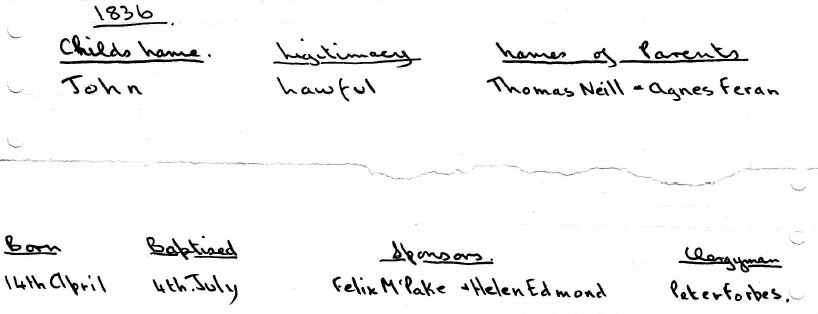 1836.
Childs name. Legitimacy names of Parents
John Lawful Thomas Neill + Agnes Feran
Born Baptised Sponsors. Clergyman
14th April 4th.July Felix McPake + Helen Edmond Peter Forbes.